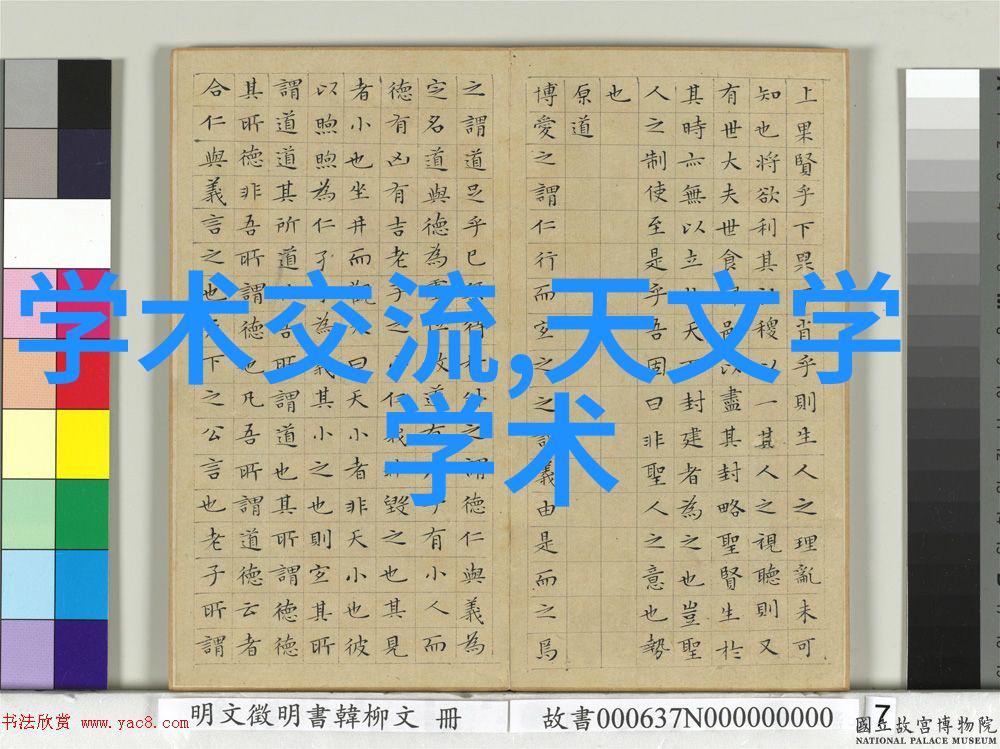 上果賢乎下果肖乎則生人之理亂未可
知也將欲利其稷以一其人之視聽則又
有世大夫世食邑以盡其封略聖賢生於
其時亦無以立天封建者為之也豈聖
人之制使至是乎吾固曰非聖人之意也勢
也
原道
博愛之謂仁行而宜之之謂義由是而之焉
之謂道足乎己待之謂德仁與義為
定名道與德為故道有有小人而
德有凶有吉老子之仁義毀之也其見
者小也坐井而觀曰天小者非天小也彼
以煦煦為仁孑為義其小之也則宜其所
謂道道其所道吾所謂道也其所謂德德
其所德非吾所謂德也凡吾所謂道德云者
合仁與義言之也天下之公言也老子所謂
学术交流,天文学
学术
明文徵明書韓柳文 冊
故書000637N000000000
7
書法欣赏 www.yac8.com
國立故宮博物院
NATIONAL PALACE MUSEUM